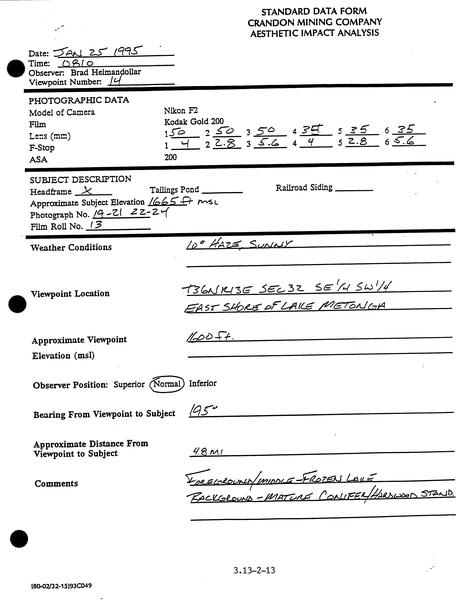 STANDARD DATA FORM
CRANDON MINING COMPANY
AESTHETIC IMPACT ANALYSIS
Date: JAN 25 1995
Time: 0810
Observer: Brad Heimandollar
Viewpoint Number: 14
PHOTOGRAPHIC DATA
Model of Camera Nikon F2
Film Kodak Gold 200
Lens (mm) 1 50 2 50 3 50 4 35 5 35 6 35
F-Stop 1 4 2 2.8 3 5.6 4 4 5 2.8 6 5.6
ASA 200
SUBJECT DESCRIPTION
Headframe X Tailings Pond Railroad Siding
Approximate Subject Elevation 1665 ft msl
Photograph No. 19-21 22-24
Film Roll No. 13
Weather Conditions 10° HAZE, SUNNY
Viewpoint Location T36N R13E SEC 32 SE 1/4 SW 1/4
EAST SHORE OF LAKE METONGA
Approximate Viewpoint 1600 ft.
Elevation (msl)
Observer Position: Superior Normal Inferior
Bearing From Viewpoint to Subject 195°
Approximate Distance From
Viewpoint to Subject 48 MI
Comments FOREGROUND/MIDDLE-FROZEN LAKE
BACKGROUND-MATURE CONIFER/HARDWOOD STAND
3.13-2-13
[80-02/32-15]93C049